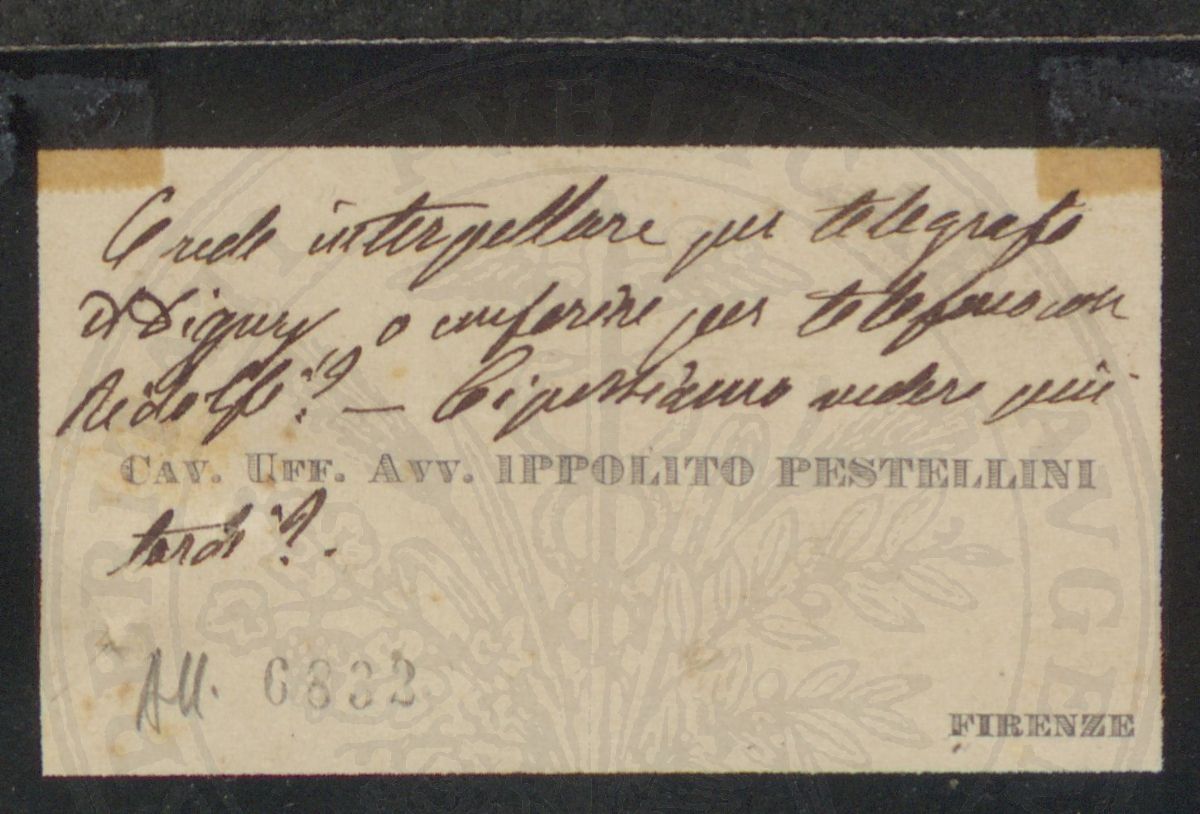 Crede interpellare per telegrafo
o conferire per telefono con
Ridolfi? — Ci possiamo vedere più
CAV. UFF. AVV. IPPOLITO PESTELLINI
tardi?.
All. 6832
FIRENZE